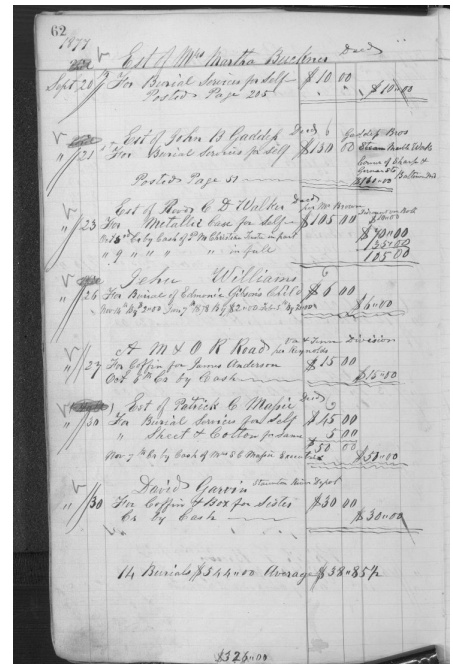 62
1877
Est of Mrs Martha Buckner Decd
Sept 20 For Burial Services for Self $10 00
Posted Page 205 $10"00
Est of John B Gaddess Decd Gaddess Bros
" 21 For Burial Services for self $130 00 Steam Marble Works
Corner of Sharp &
Posted Page 51 Baltimore Md
Est of Revd C D Walker Decd per Mr Brown
" 23 For Metallic Case for Self $105 00
Cr by Cash of P M Christian in part $70"00
" 9 " " " " in full 35"00
105 00
John Williams
" 26 For Burial of Edmonia Gibsons Child $6 00
Nov 14th By 2"00 Jany 7th 1878 By $2"00 Feb 5th By 2"00 $6"00
A M & O R Road Va & Tenn Division
per Reynolds
" 27 For Coffin for James Anderson $15 00
Oct Cr by Cash $15"00
Est of Patrick C Massie Decd
" 30 For Burial Services for Self $45 00
" Sheet & Cotton for same 5 00
$50 00
Nov 7th Cr by Cash of Mrs S C Massie Executrix $50"00
David Garvin Staunton River Depot
" 30 For Coffin & Box for Sister $30 00
Cr by Cash $30"00
14 Burials $544"00 Average $38"85½
$326"00